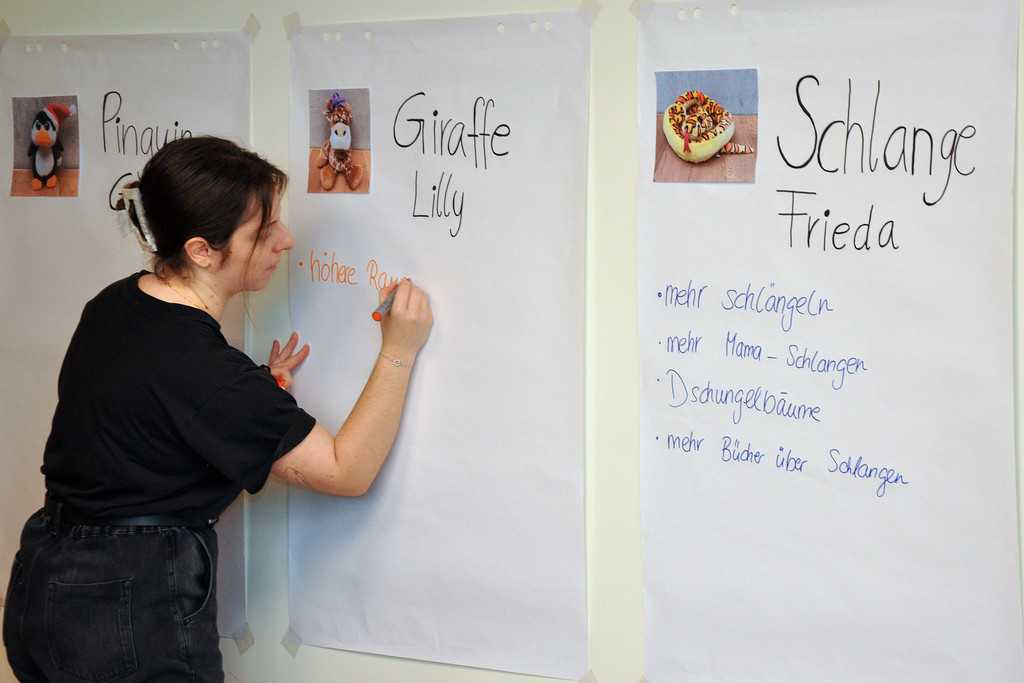 Pinguin
Giraffe
Lilly
• höhere
Schlange
Frieda
• mehr schlängeln
• mehr Mama-Schlangen
• Dschungelbäume
• mehr Bücher über Schlangen